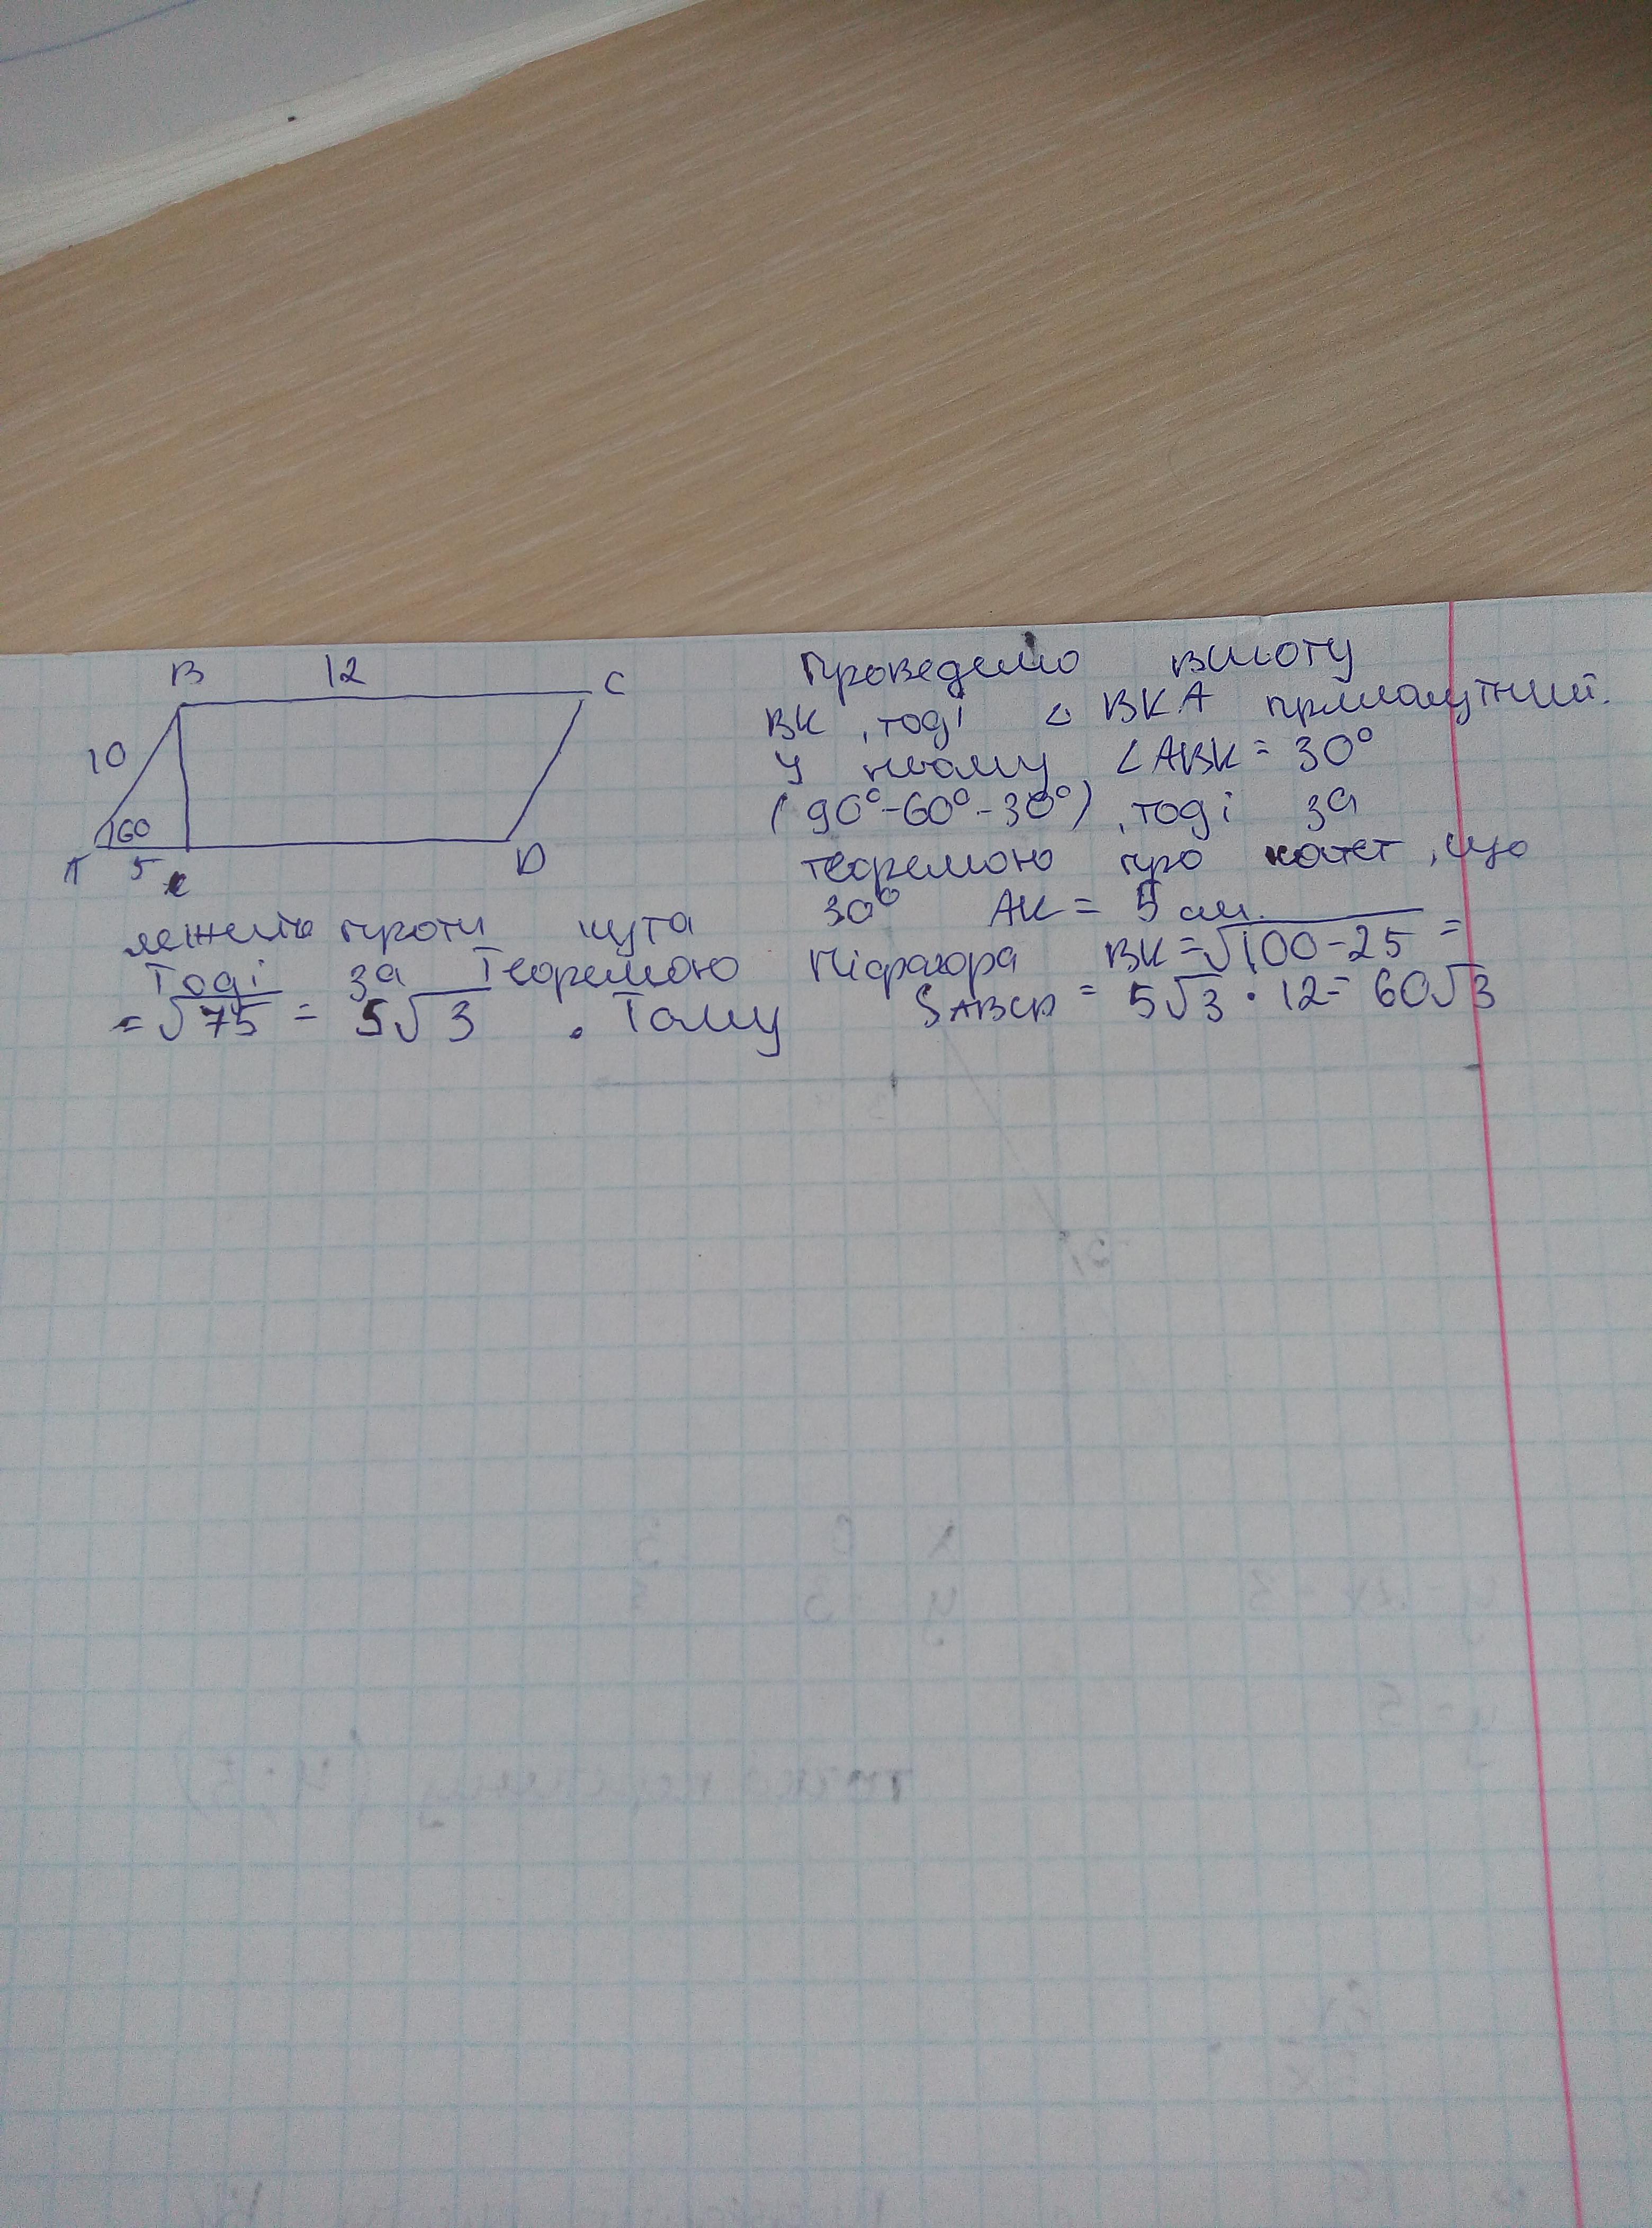 B 12 C
10
60
A 5 K D
Проведемо висоту
BK, тоді △ BKA прямокутний.
У ньому ∠ABK = 30°
(90°-60°-30°), тоді за
теоремою про катет, що
лежить проти кута 30° AK = 5 см.
Тоді за Теоремою Піфагора BK = √100-25 =
= √75 = 5√3 . Тому SABCD = 5√3 · 12 = 60√3